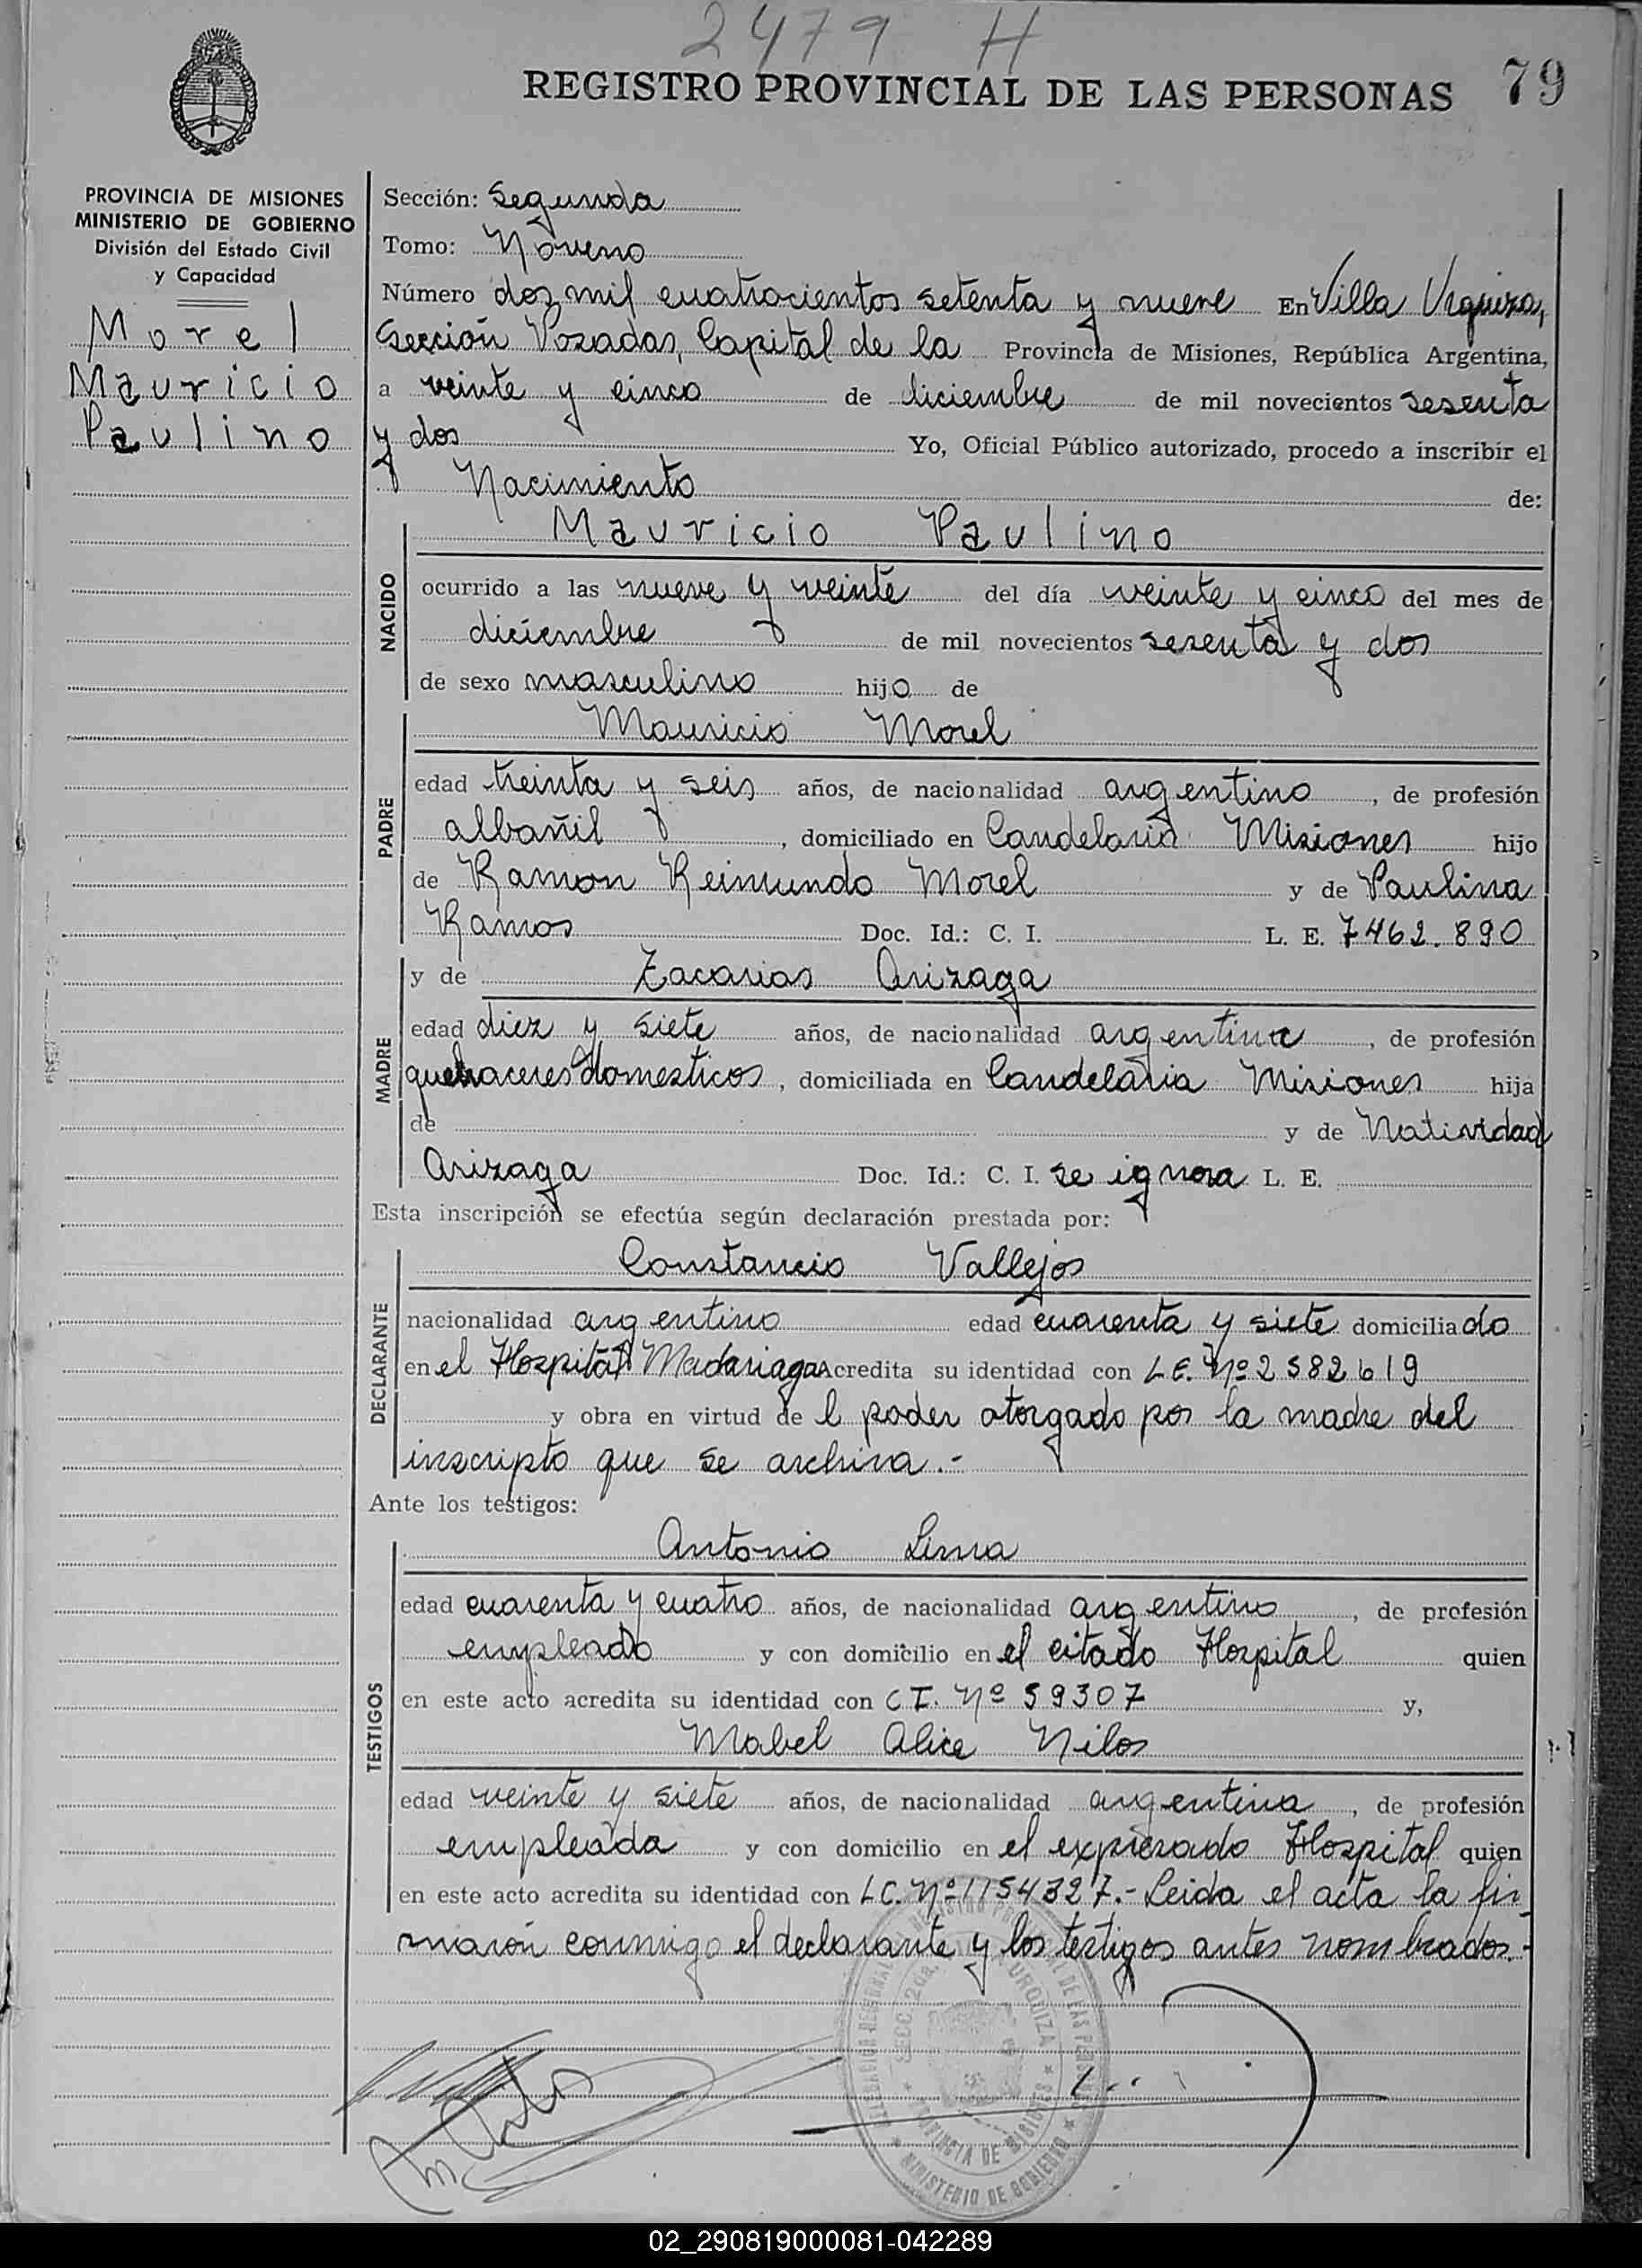 2479 H
REGISTRO PROVINCIAL DE LAS PERSONAS 79
PROVINCIA DE MISIONES
MINISTERIO DE GOBIERNO
División del Estado Civil
y Capacidad
Morel
Mauricio
Paulino
Sección: Segunda
Tomo: Noveno
Número dos mil cuatrocientos setenta y nueve En Villa Urquiza,
Sección Posadas, Capital de la Provincia de Misiones, República Argentina,
a veinte y cinco de diciembre de mil novecientos sesenta
y dos Yo, Oficial Público autorizado, procedo a inscribir el
Nacimiento de:
NACIDO
Mauricio Paulino
ocurrido a las nueve y veinte del día veinte y cinco del mes de
diciembre de mil novecientos sesenta y dos
de sexo masculino hijo de
PADRE
Mauricio Morel
edad treinta y seis años, de nacionalidad argentino, de profesión
albañil, domiciliado en Candelaria Misiones hijo
de Ramon Reimundo Morel y de Paulina
Ramos Doc. Id.: C. I. L. E. 7462.890
MADRE
y de Zacarias Arizaga
edad diez y siete años, de nacionalidad argentina, de profesión
quehaceres domesticos, domiciliada en Candelaria Misiones hija
de y de Natividad
Arizaga Doc. Id.: C. I. se ignora L. E.
Esta inscripción se efectúa según declaración prestada por:
DECLARANTE
Constancio Vallejos
nacionalidad argentino edad cuarenta y siete domiciliado
en el Hospital Madariaga Acredita su identidad con L.E. Nº 2582619
y obra en virtud de l poder otorgado por la madre del
inscripto que se archiva.-
Ante los testigos:
TESTIGOS
Antonio Lima
edad cuarenta y cuatro años, de nacionalidad argentino, de profesión
empleado y con domicilio en el citado Hospital quien
en este acto acredita su identidad con C I. Nº 59307 y,
Mabel Alice Nilos
edad veinte y siete años, de nacionalidad argentina, de profesión
empleada y con domicilio en el expresado Hospital quien
en este acto acredita su identidad con L.C. Nº 1154327.- Leida el acta la fir_
maron conmigo el declarante y los testigos antes nombrados.-
SECC. 2da. URQUIZA
PROVINCIA DE MISIONES
MINISTERIO DE GOBIERNO
02_290819000081-042289